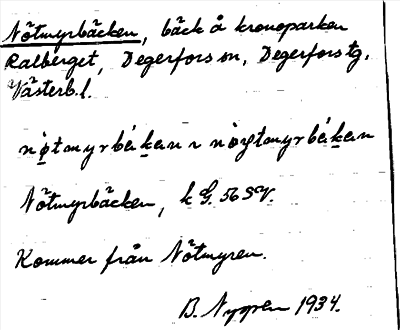 Nötmyrbäcken, bäck å kronoparken
Ralberget, Degerfors sn, Degerfors tg,
Västerb.l.
nø̀tmyrbäkan ~
Nötmyrbäcken, k G. 56 SV.
Kommer från Nötmyren.
B. Nygren 1934.